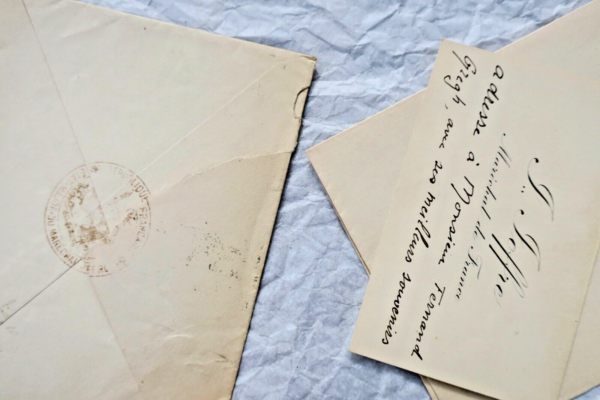 J. Joffre
Maréchal de France
adresse à Monsieur Fernand
Gregh, avec ses meilleurs souvenirs